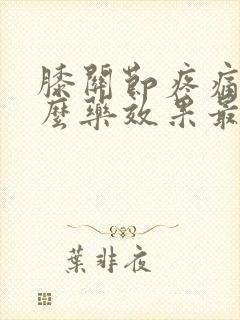 膝關節疼痛
麼藥效果最
葉非夜